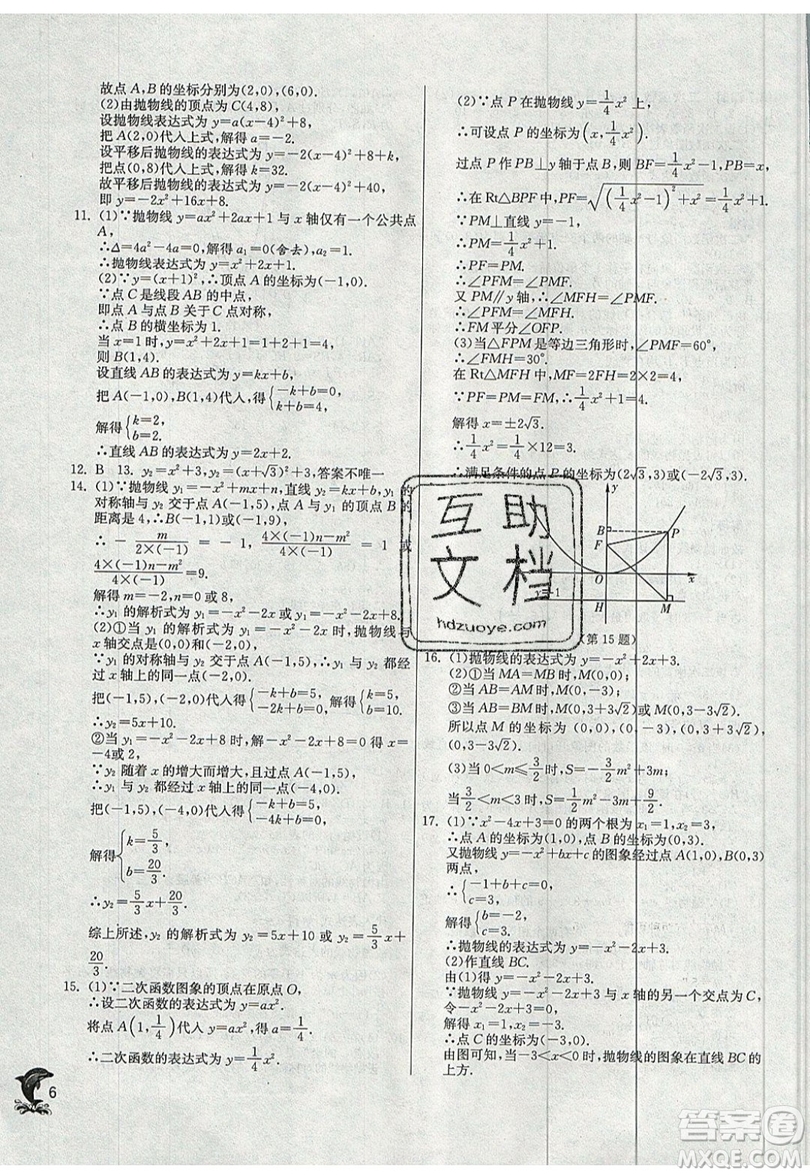 故点 A,B 的坐标分别为(2,0),(6,0).
(2)由抛物线的顶点为 C(4,8),
设抛物线表达式为 y=a(x-4)²+8,
把 A(2,0)代入上式,解得 a=-2.
设平移后抛物线的表达式为 y=-2(x-4)²+8+k,
把点(0,8)代入上式得 k=32.
故平移后抛物线的表达式为 y=-2(x-4)²+40,
即 y=-2x²+16x+8.
11. (1)∵抛物线 y=ax²+2ax+1 与 x 轴仅有一个公共点
A,
∴Δ=4a²-4a=0,解得 a₁=0(舍去),a₂=1.
∴抛物线表达式为 y=x²+2x+1.
(2)∵y=(x+1)²,∴顶点 A 的坐标为(-1,0).
∵点 C 是线段 AB 的中点,
即点 A 与点 B 关于 C 点对称,
∴点 B 的横坐标为 1.
当 x=1 时,y=x²+2x+1=1+2+1=4,
则 B(1,4).
设直线 AB 的表达式为 y=kx+b,
把 A(-1,0),B(1,4)代入,得{-k+b=0, k+b=4,
解得{k=2, b=2.
∴直线 AB 的表达式为 y=2x+2.
12. B 13. y₂=x²+3, y₂=(x+√3)²,答案不唯一
14. (1)∵抛物线 y₁=-x²+mx+n,直线 y₂=kx+b,y₁ 的
对称轴与 y₂ 交于点 A(-1,5),点 A 与 y₁ 的顶点 B 的
距离是 4,
∴ -m/(2×(-1)) = -1, (4×(-1)n-m²)/(4×(-1)) =1 或
(4×(-1)n-m²)/(4×(-1))=9.
解得 m=-2,n=0 或 8,
∴y₁ 的解析式为 y₁=-x²-2x 或 y₁=-x²-2x+8.
(2)①当 y₁ 的解析式为 y₁=-x²-2x 时,抛物线与
x 轴交点是(0,0)和(-2,0),
∵y₁ 的对称轴与 y₂ 交于点 A(-1,5),∴y₁ 与 y₂ 都经
过 x 轴上的同一点(-2,0),
把(-1,5),(-2,0)代入得{-k+b=5, -2k+b=0,解得{k=5, b=10.
∴y₂=5x+10.
②当 y₁=-x²-2x+8 时,解-x²-2x+8=0 得 x=
-4 或 2,
∵y₂ 随着 x 的增大而增大,且过点 A(-1,5),
∴y₁ 与 y₂ 都经过 x 轴上的同一点(-4,0),
把(-1,5),(-4,0)代入得{-k+b=5, -4k+b=0,
解得{k=5/3, b=20/3.
∴y₂=5/3 x+20/3.
综上所述,y₂ 的解析式为 y₂=5x+10 或 y₂=5/3 x+
20/3.
15. (1)∵二次函数图象的顶点在原点 O,
∴设二次函数的表达式为 y=ax².
将点 A(1,1/4)代入 y=ax²,得 a=1/4.
∴二次函数的表达式为 y=1/4 x².
6
(2)∵点 P 在抛物线 y=1/4 x² 上,
∴可设点 P 的坐标为(x,1/4 x²).
过点 P 作 PB⊥y 轴于点 B,则 BF=1/4 x²-1,PB=x.
∴在 Rt△BPF 中,PF=√((1/4 x²-1)²+x²)=1/4 x²+1.
∵PM⊥直线 y=-1,
∴PM=1/4 x²+1.
∴PF=PM.
∴∠PFM=∠PMF.
又 PM∥y 轴,∴∠MFH=∠PMF.
∴∠PFM=∠MFH.
∴FM 平分∠OFP.
(3)当△FPM 是等边三角形时,∠PMF=60°,
∴∠FMH=30°.
在 Rt△MFH 中,MF=2FH=2×2=4,
∵PF=PM=FM,∴1/4 x²+1=4,
解得 x=±2√3.
∴1/4 x²=1/4×12=3.
∴满足条件的点 P 的坐标为(2√3,3)或(-2√3,3).
y
B P
F
O x
y=-1
H M
(第 15 题)
16. (1)抛物线的表达式为 y=-x²+2x+3.
(2)①当 MA=MB 时,M(0,0);
②当 AB=AM 时,M(0,-3);
③当 AB=BM 时,M(0,3+3√2)或 M(0,3-3√2).
所以点 M 的坐标为 (0,0),(0,-3),(0,3+3√2),
(0,3-3√2).
(3)当 0<m≤3/2时,S=-3/2 m²+3m;
当 3/2≤m<3 时,S=1/2 m²-3m+9/2.
17. (1)∵x²-4x+3=0 的两个根为 x₁=1,x₂=3,
∴点 A 的坐标为(1,0),点 B 的坐标为(0,3).
又抛物线 y=-x²+bx+c 的图象经过点 A(1,0),B(0,3)
两点,
∴{-1+b+c=0, c=3,
解得{b=-2, c=3.
∴抛物线的表达式为 y=-x²-2x+3.
(2)作直线 BC.
由(1)得 y=-x²-2x+3 与 x 轴的另一个交点为 C,
令-x²-2x+3=0,
解得 x₁=1,x₂=-3.
∴点 C 的坐标为(-3,0).
由图可知,当-3<x<0时,抛物线的图象在直线 BC 的
上方.
互助
文档
hdzuoye.com
答案圈
MXQE.COM